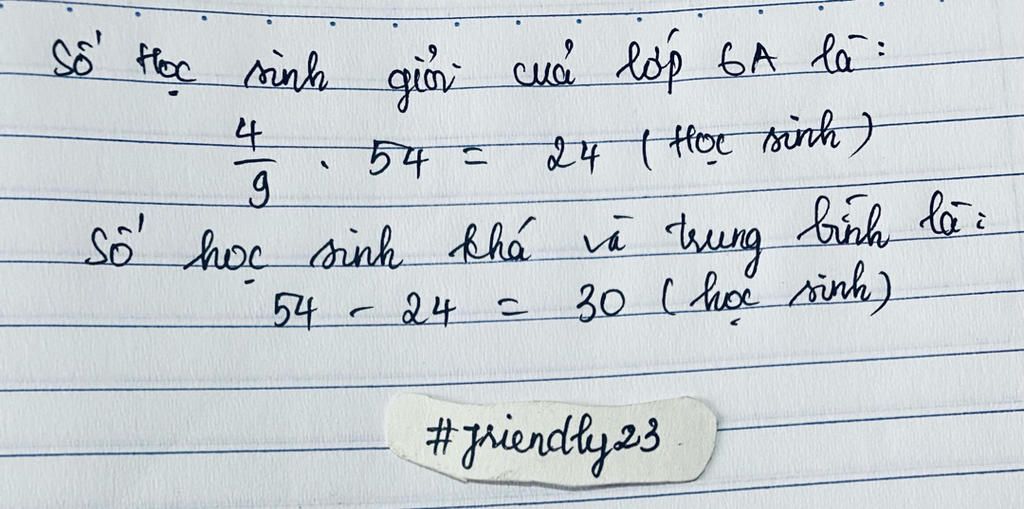 Số Học sinh giỏi của lớp 6A là:
4/9 . 54 = 24 (Học sinh)
Số học sinh khá và trung bình là:
54 - 24 = 30 (học sinh)
#friendly23